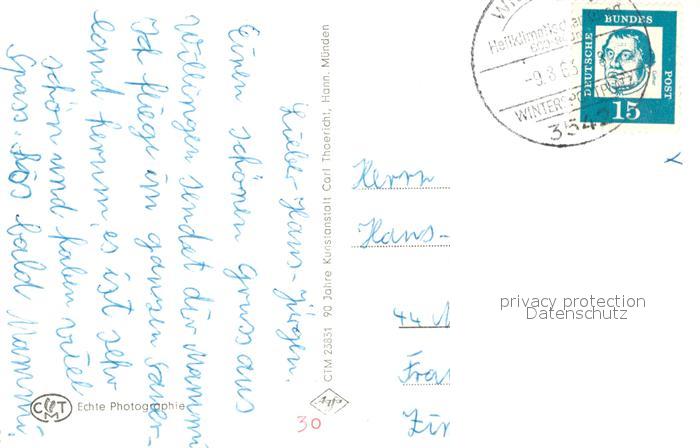 Lieber Hans-Jürgen.
Einen schönen Gruss aus
Willingen sendet dir Mammi
Ich fliege im ganzen Sauer-
land herum, es ist sehr
schön und haben viel
Spass. bis bald Mammi
CTM 23831 90 Jahre Kunstanstalt Carl Thoericht, Hann. Münden
CTM
Echte Photographie
30
Agfa
Herrn
Hans-
44
Heilklimatischer
-9.8.63
WINTERSPORTPLATZ
3542
DEUTSCHE BUNDES POST
15
privacy protection
Datenschutz